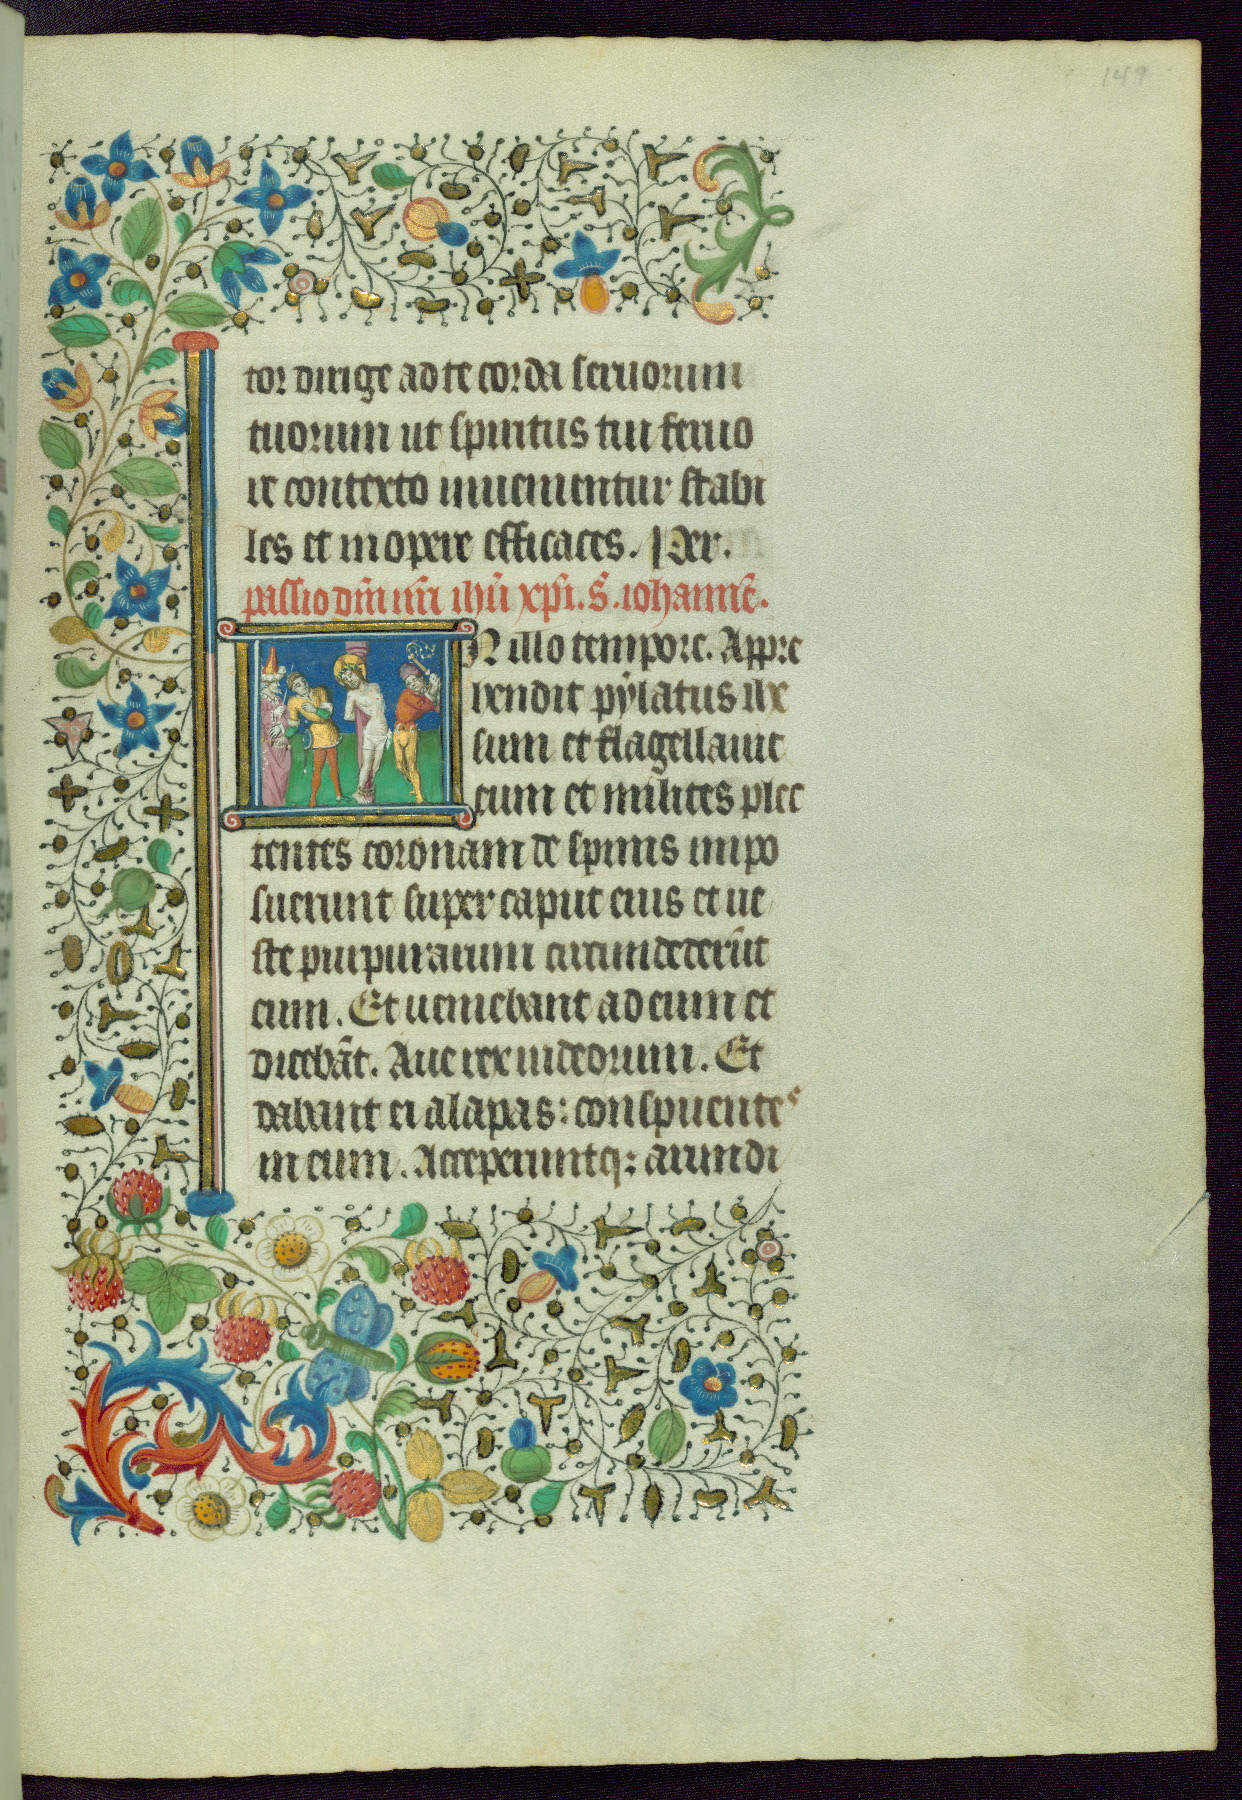 149
tor dirige ad te corda seruorum
tuorum ut spiritus tui feruo
re contexto inuenientur stabi
les et in opere efficaces. Per.
passio dñi nr̃i ihũ xp̃i. S̃. iohannẽ.
N illo tempore. Appre
hendit pylatus ihe
sum et flagellauit
eum et milites plec
tentes coronam de spinis impo
suerunt super caput eius et ue
ste purpurarum circumdederũt
eum. Et ueniebant ad eum et
dicebãt. Aue rex iudeorum. Et
dabant ei alapas: conspuentes
in eum. Acceperuntq; arundi